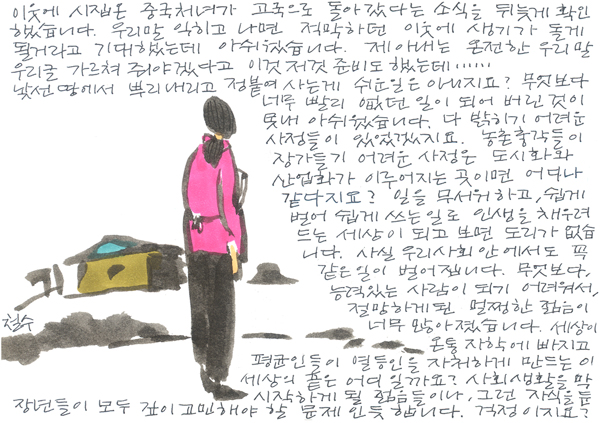 이웃에 시집온 중국처녀가 고국으로 돌아갔다는 소식을 뒤늦게 확인
했습니다. 우리말 익히고 나면 적막하던 이웃에 생기가 돌게
될거라고 기대했는데 아쉬웠습니다. 제 아내는 온전한 우리말
우리글 가르쳐 줘야겠다고 이것 저것 준비도 했는데……
낯선 땅에서 뿌리내리고 정붙여 사는게 쉬운일은 아니지요? 무엇보다
너무 빨리 없던 일이 되어 버린 것이
못내 아쉬웠습니다. 다 밝히기 어려운
사정들이 있었겠지요. 농촌총각들이
장가들기 어려운 사정은 도시화와
산업화가 이루어지는 곳이면 어디나
같다지요? 일을 무서워하고, 쉽게
벌어 쉽게 쓰는 일로 인생을 채우려
드는 세상이 되고 보면 도리가 없습
니다. 사실 우리사회 안에서도 꼭
같은일이 벌어집니다. 무엇보다,
능력있는 사람이 되기 어려워서,
절망하게 된 멀쩡한 젊음이
너무 많아졌습니다. 세상이
온통 자학에 빠지고
평균인들이 열등인을 자처하게 만드는 이
세상의 끝은 어디일까요? 사회생활을 막
시작하게 될 젊음들이나, 그런 자식을 둔
장년들이 모두 깊이 고민해야 할 문제인듯 합니다. 걱정이지요?
철수